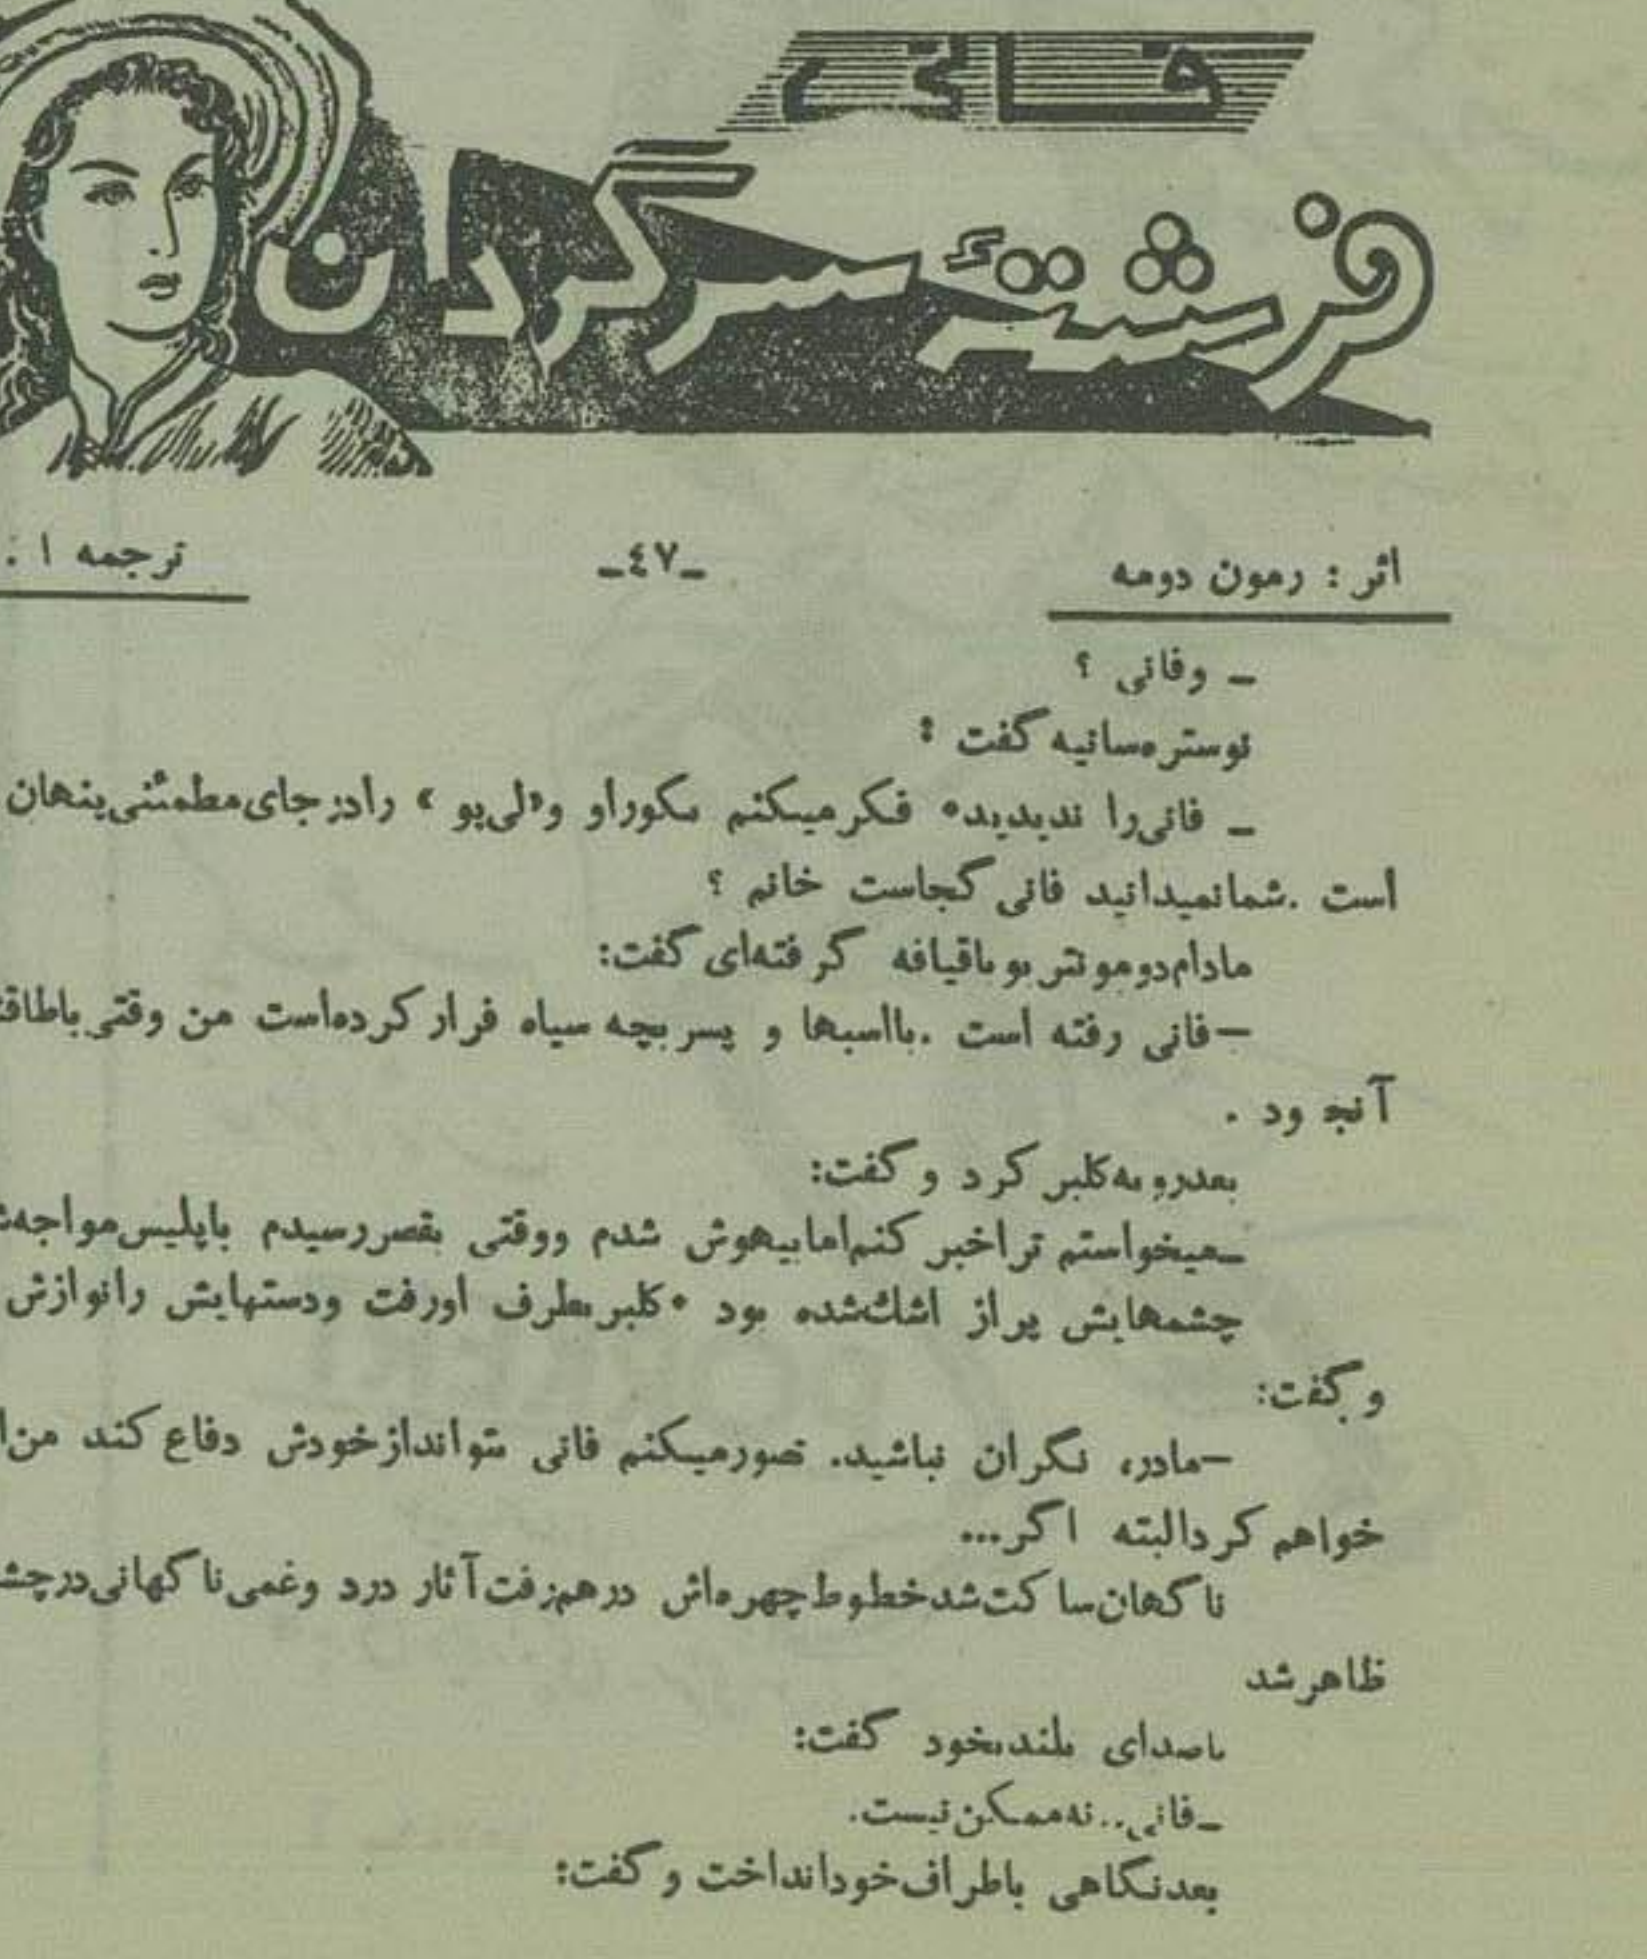 فانی
فرشتهٔ سرگردان
اثر : رمون دومه
ـ۴۷ـ
ترجمه ا .
ـ وفانی ؟
نوستره‌سانیه گفت :
ـ فانی‌را ندیدید. فکر میکنم بکوراو و«لی‌پو » رادرجای‌مطمئنی‌پنهان
است .شمانمیدانید فانی کجاست خانم ؟
مادام‌دومونتر بو باقیافه گرفته‌ای گفت:
ـ فانی رفته است .بااسبها و پسر بچه سیاه فرار کرده‌است من وقتی باطاقش
آنجا ود .
بعدرو به‌کلبر کرد و گفت:
ـمیخواستم تراخبر کنم‌امابیهوش شدم ووقتی بقصررسیدم باپلیس‌مواجه
چشمهایش پراز اشک‌شده بود .کلبربطرف اورفت ودستهایش رانوازش
و گفت:
ـمادر، نگران نباشید. تصورمیکنم فانی بتوانداز‌خودش دفاع کند من
خواهم کردالبته اگر...
ناگهان‌ساکت‌شدخطوط‌چهره‌اش درهم‌رفت‌آثار درد وغمی‌ناگهانی‌در
ظاهرشد
باصدای بلندبخود گفت:
ـفانی.. نه‌ممکن‌نیست.
بعدنگاهی باطراف‌خودانداخت و گفت: